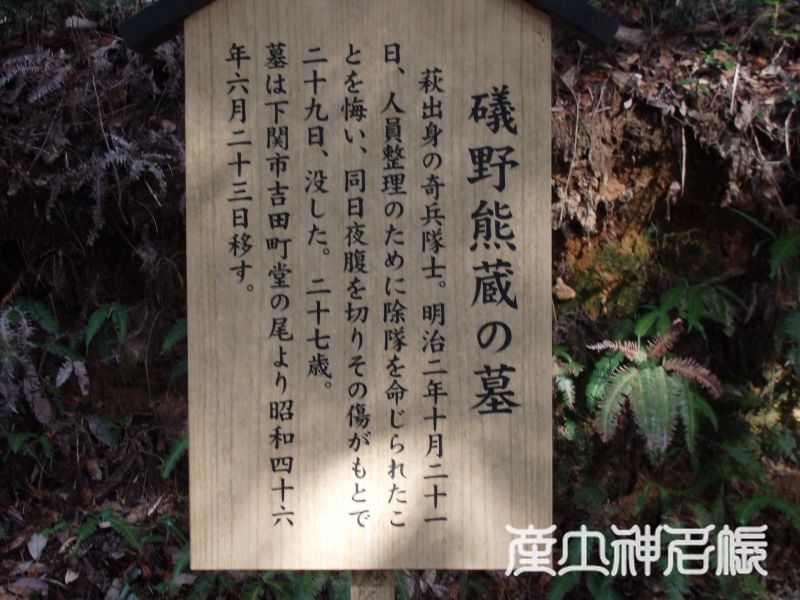 礒野熊蔵の墓
萩出身の奇兵隊士。明治二年十月二十一
日、人員整理のために除隊を命じられたこ
とを悔い、同日夜腹を切りその傷がもとで
二十九日、没した。二十七歳。
墓は下関市吉田町堂の尾より昭和四十六
年六月二十三日移す。
産土神名帳